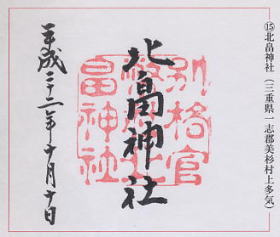 ⑮北畠神社（三重県一志郡美杉村上多気）
北畠神社
別格官
幣社北
畠神社
平成二十二年十月十日